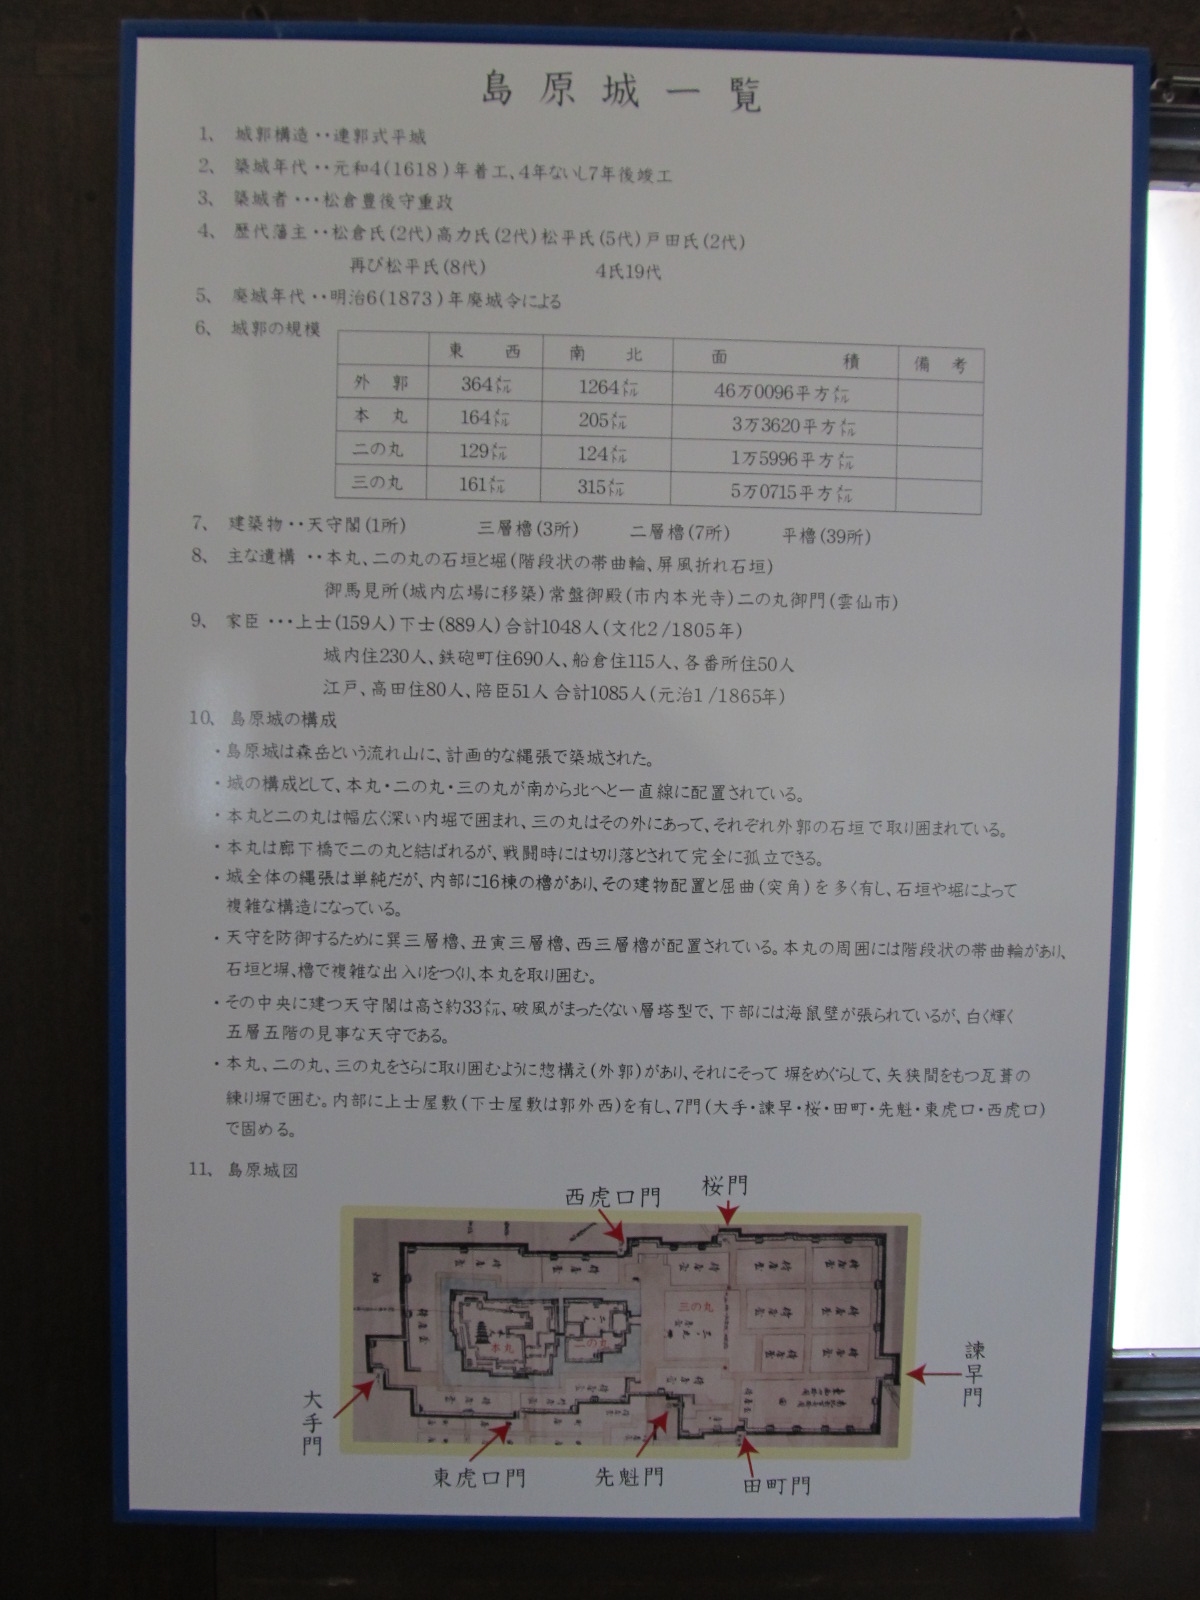 島原城一覧
1、 城郭構造‥連郭式平城
2、 築城年代‥元和4(1618)年着工、4年ないし7年後竣工
3、 築城者‥・松倉豊後守重政
4、 歴代藩主‥松倉氏(2代)高力氏(2代)松平氏(5代)戸田氏(2代)
再び松平氏(8代) 4氏19代
5、 廃城年代‥明治6(1873)年廃城令による
6、 城郭の規模
東西 南北 面積 備考
外郭 364㍍ 1264㍍ 46万0096平方㍍
本丸 164㍍ 205㍍ 3万3620平方㍍
二の丸 129㍍ 124㍍ 1万5996平方㍍
三の丸 161㍍ 315㍍ 5万0715平方㍍
7、 建築物‥天守閣(1所) 三層櫓(3所) 二層櫓(7所) 平櫓(39所)
8、 主な遺構 ‥本丸、二の丸の石垣と堀(階段状の帯曲輪、屏風折れ石垣)
御馬見所(城内広場に移築)常盤御殿(市内本光寺)二の丸御門(雲仙市)
9、 家臣‥・上士(159人)下士(889人)合計1048人(文化2/1805年)
城内住230人、鉄砲町住690人、船倉住115人、各番所住50人
江戸、高田住80人、陪臣51人 合計1085人(元治1/1865年)
10、 島原城の構成
・島原城は森岳という流れ山に、計画的な縄張で築城された。
・城の構成として、本丸・二の丸・三の丸が南から北へと一直線に配置されている。
・本丸と二の丸は幅広く深い内堀で囲まれ、三の丸はその外にあって、それぞれ外郭の石垣で取り囲まれている。
・本丸は廊下橋で二の丸と結ばれるが、戦闘時には切り落とされて完全に孤立できる。
・城全体の縄張は単純だが、内部に16棟の櫓があり、その建物配置と屈曲(突角)を多く有し、石垣や堀によって
複雑な構造になっている。
・天守を防御するために巽三層櫓、丑寅三層櫓、西三層櫓が配置されている。本丸の周囲には階段状の帯曲輪があり、
石垣と塀、櫓で複雑な出入りをつくり、本丸を取り囲む。
・その中央に建つ天守閣は高さ約33㍍、破風がまったくない層塔型で、下部には海鼠壁が張られているが、白く輝く
五層五階の見事な天守である。
・本丸、二の丸、三の丸をさらに取り囲むように惣構え(外郭)があり、それにそって 塀をめぐらして、矢狭間をもつ瓦葺の
練り塀で囲む。内部に上士屋敷(下士屋敷は郭外西)を有し、7門(大手・諫早・桜・田町・先魁・東虎口・西虎口)
で固める。
11、 島原城図
西虎口門 桜門
三の丸
本丸 二の丸
諫早門
大手門
東虎口門 先魁門 田町門